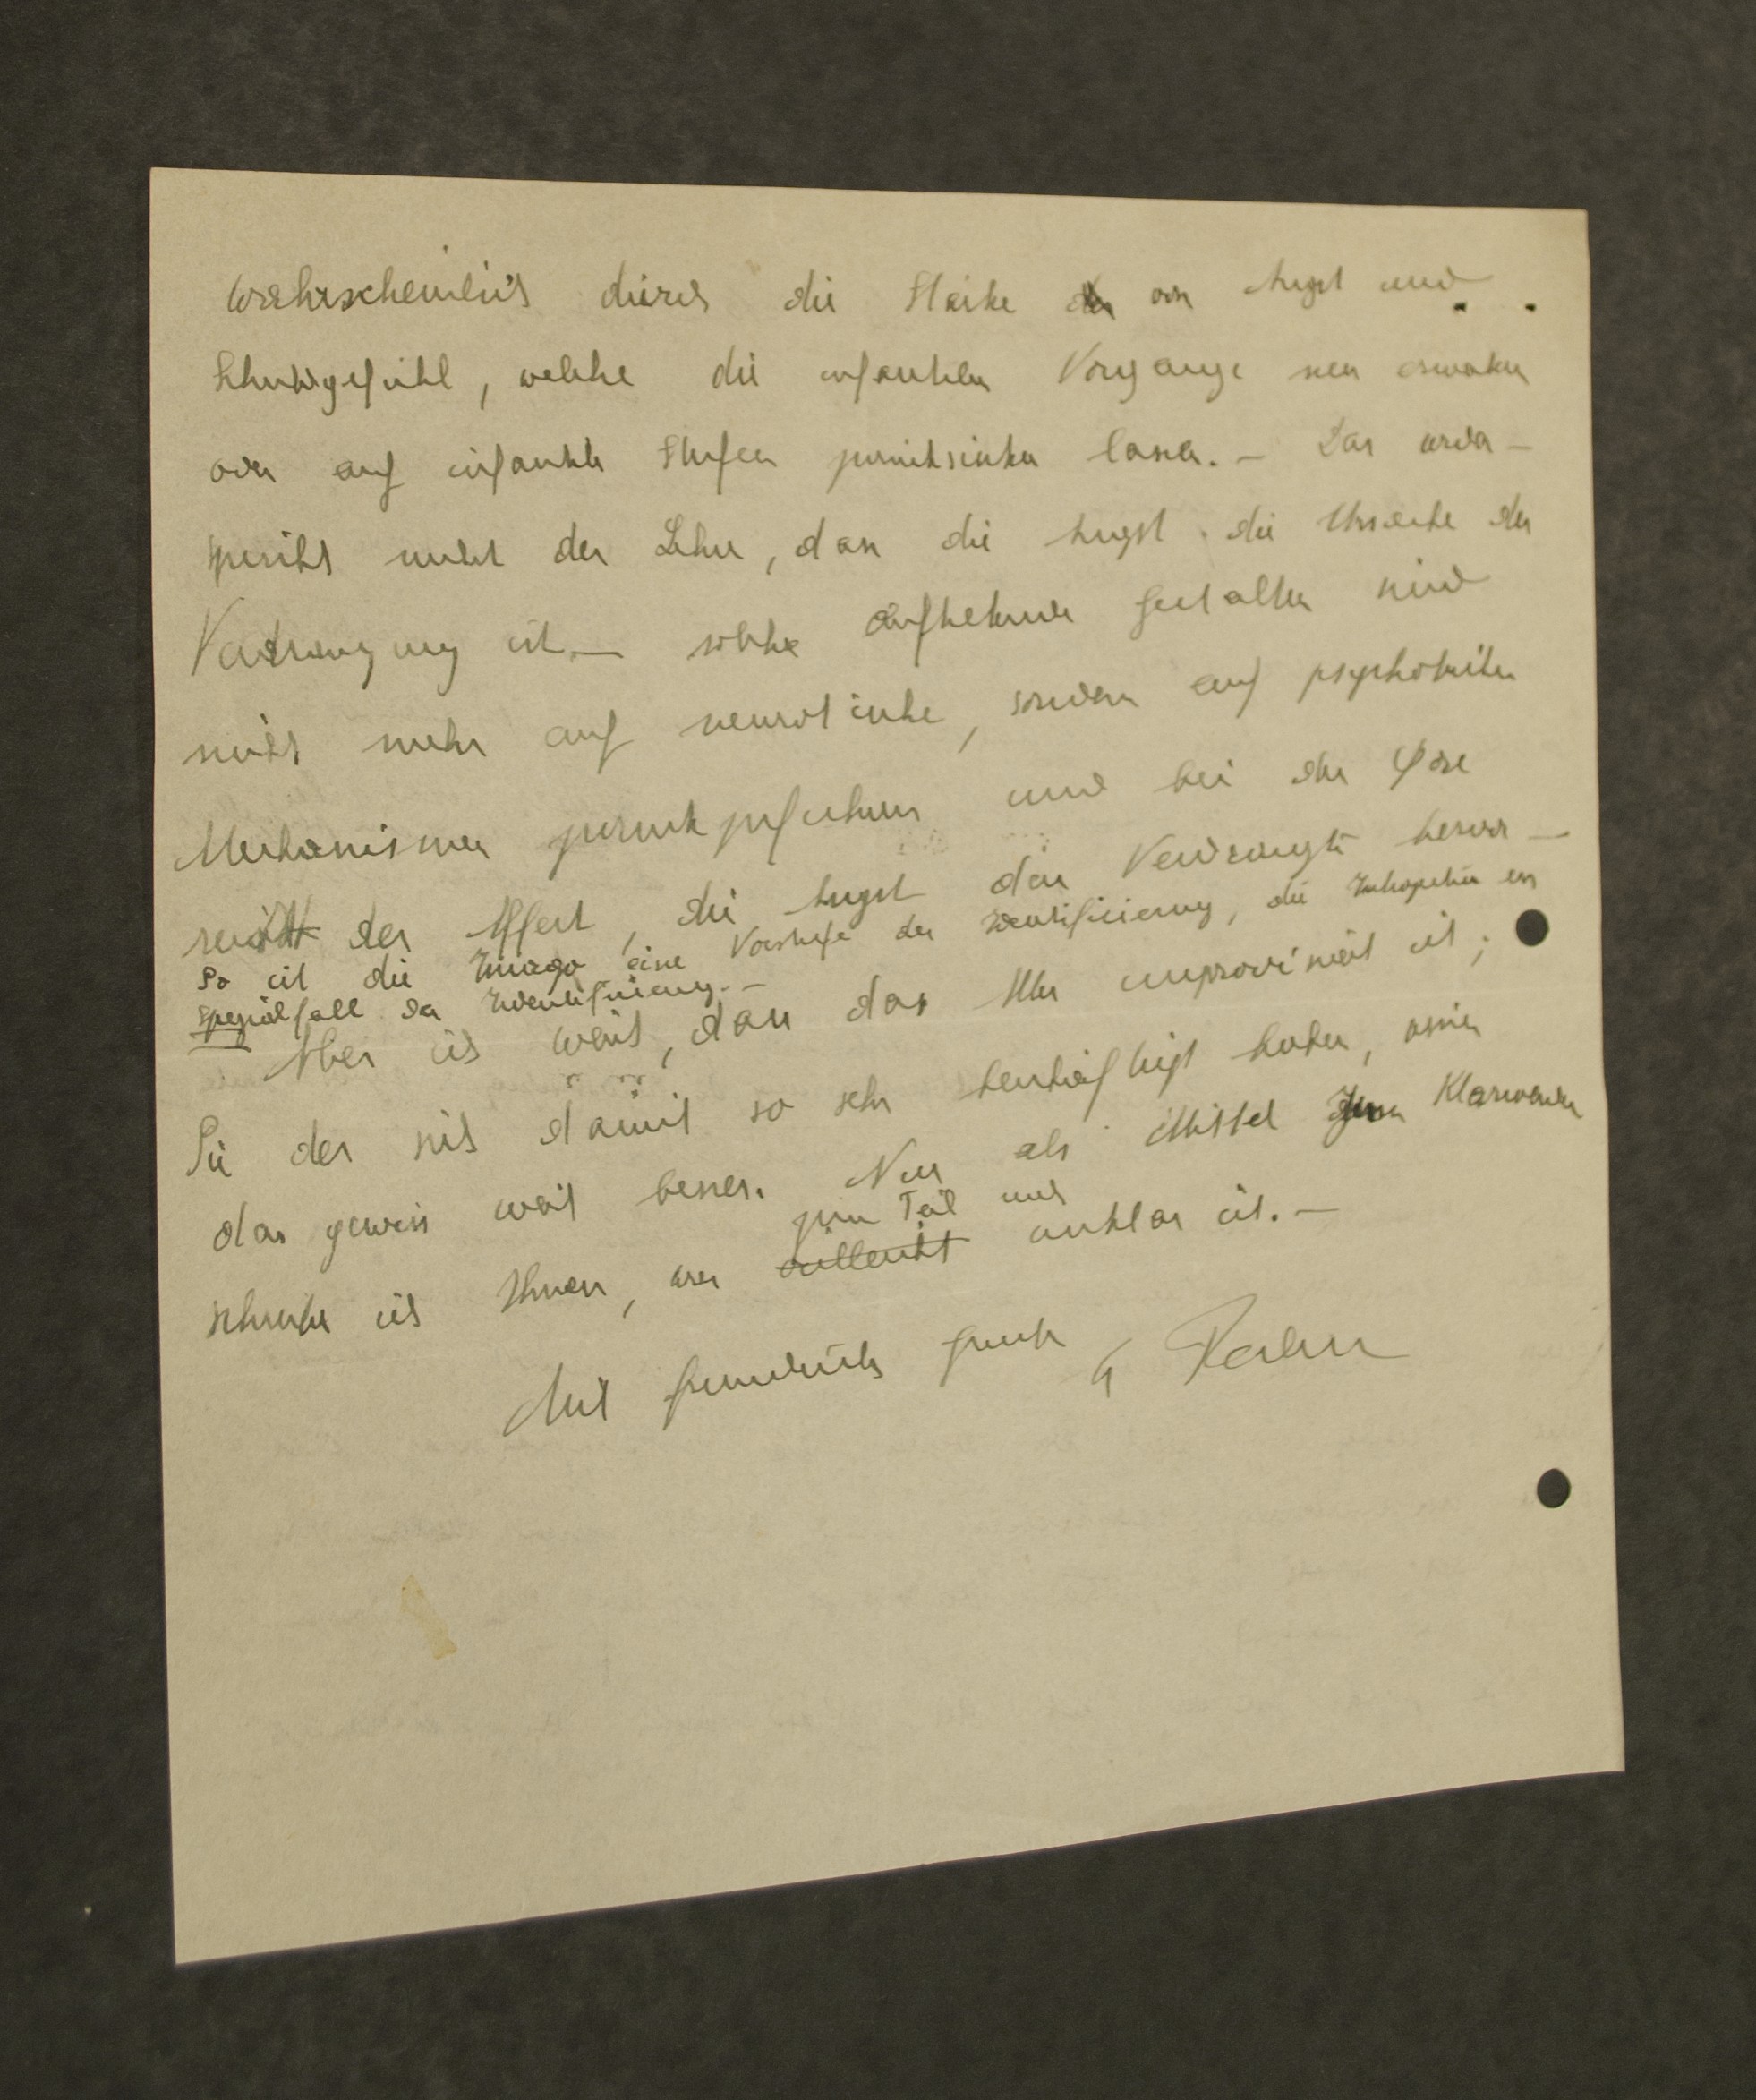 wahrscheinlich durch die Stärke von Angst und
Schuldgefühl, welche die infantilen Vorgänge neu erwecken
oder auf infantile Stufen zurücksinken lassen. – Das wider-
spricht nicht der Lehre, dass die Angst die Ursache der
Verdrängung ist. – solche Gestalten sind
nicht mehr auf neurotische, sondern auf psychotische
Mechanismen zurückzuführen und bei der
der Affect, die Angst das Verdrängte hervor –
So ist die Imago eine Vorstufe der Identifizierung, die ein
Spezialfall der Identifizierung. –
Aber ich weiß, dass das Alles improvisiert ist;
Sie der sich damit so sehr beschäftigt haben, wissen
das gewiss weit besser. Nur als Mittel zum Klarwerden
zum Teil noch
schreibe ich Ihnen, was vielleicht unklar ist. –
Mit freundlichem Gruß